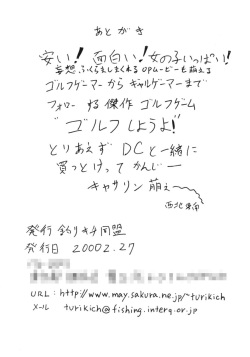 あとがき
安い!面白い!女の子いっぱい!
妄想ふくらましまくれるOPムービーも萌える
ゴルフゲーマーからギャルゲーマーまで
フォローする傑作ゴルフゲーム
"ゴルフしようよ"
とりあえずDCと一緒に
買っとけってかんじー
キャサリン萌え〜
西北
発行 釣りキチ同盟
発行日 20002.27
URL: http://www.may.sakura.ne.jp/~turikich
メール turikich@fishing.interq.or.jp